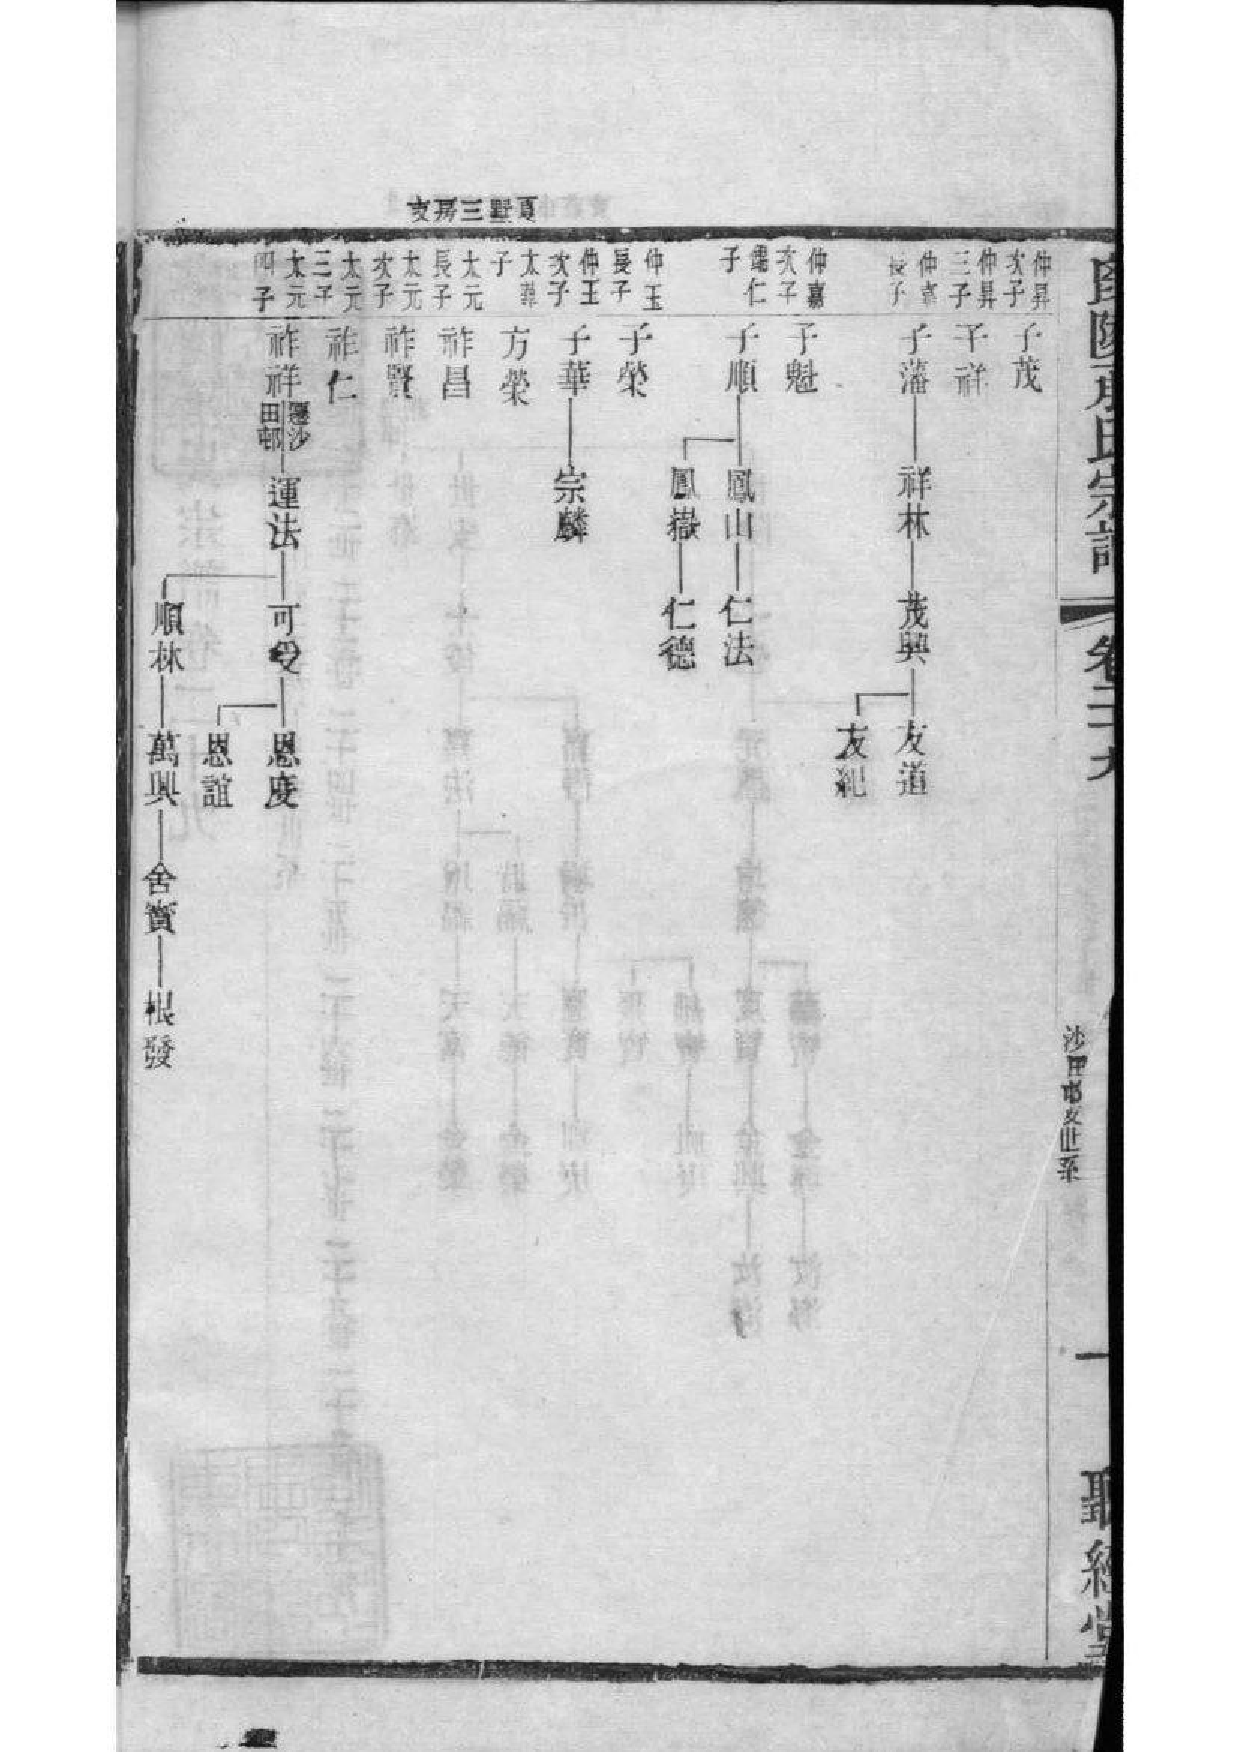 氏宗譜
卷二十九
沙田邨支世系
一
聽經堂
夏墅三房支
仲昇次子
子茂
仲昇三子
子祥
仲嘉長子
子藩
祥林
茂興
友道
友紀
仲嘉次子
子魁
子
子順
鳳山
仁法
鳳嶽
仁德
仲玉長子
子榮
仲玉次子
子華
宗麟
子
方榮
太元長子
祚昌
太元次子
祚賢
太元三子
祚仁
太元四子
祚祥
遷沙田邨
運法
可受
恩度
恩誼
順林
萬興
舍寶
根發